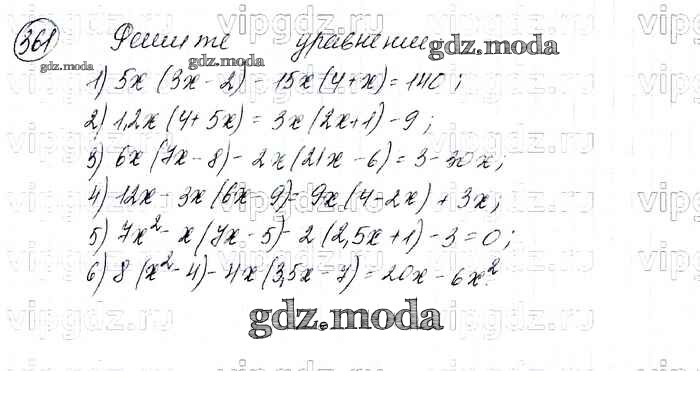 361 Решите уравнение gdz.moda
gdz.moda
1) 5x (3x - 2) - 15x (4 + x) = 140;
2) 1,2x (4 + 5x) = 3x (2x + 1) - 9;
3) 6x (7x - 8) - 2x (21x - 6) = 3 - 30x;
4) 12x - 3x (6x - 9) = 9x (4 - 2x) + 3x;
5) 7x² - x (7x - 5) - 2 (2,5x + 1) - 3 = 0;
6) 8 (x² - 4) - 4x (3,5x - 7) = 20x - 6x²
gdz.moda